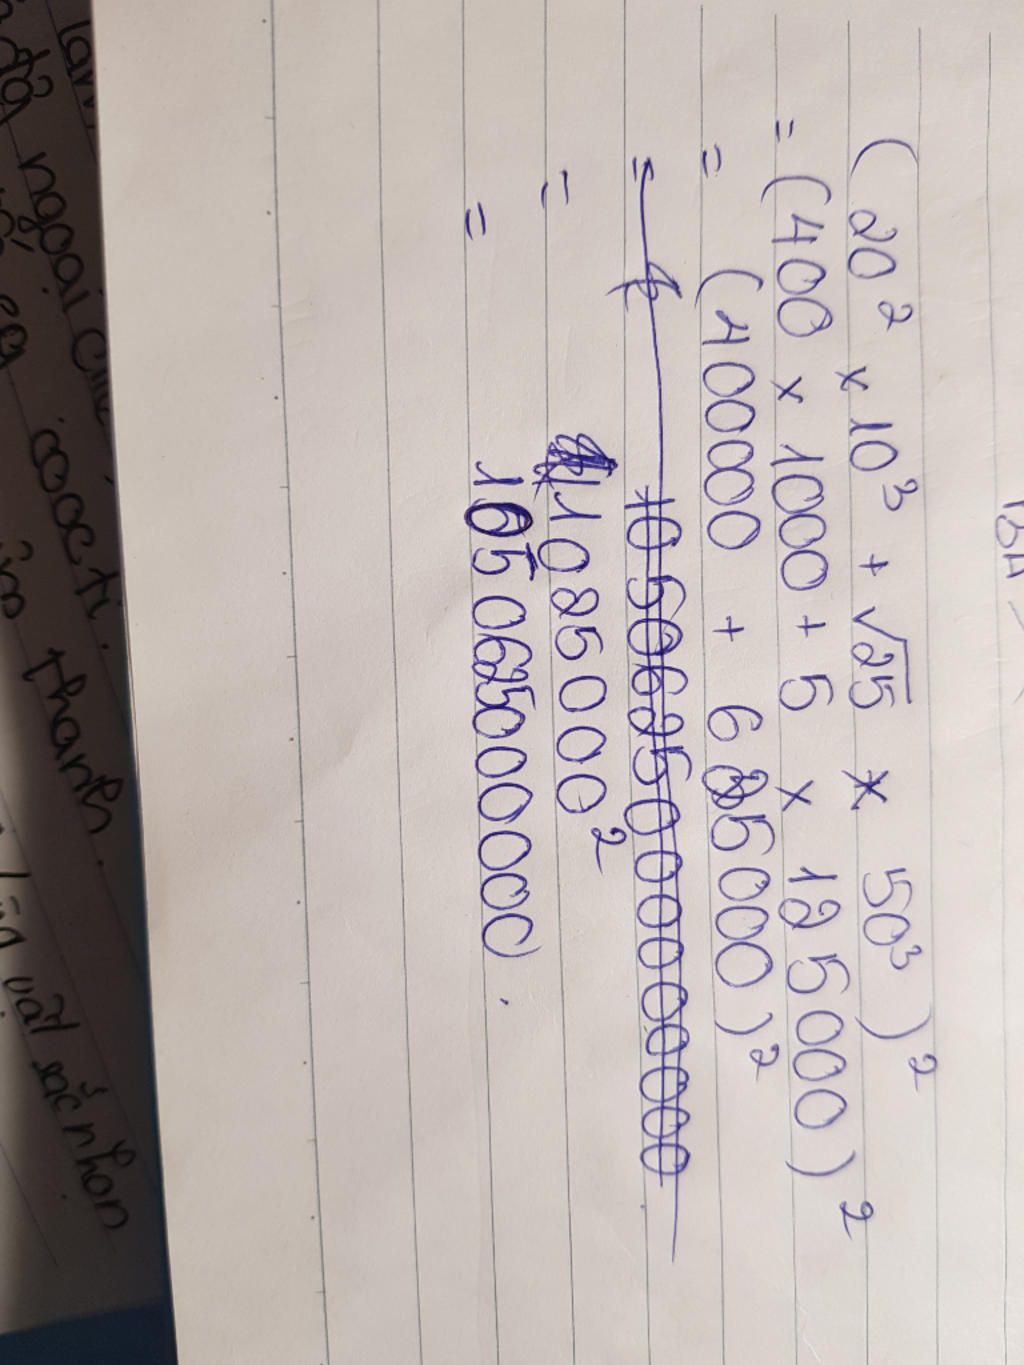 (20² × 10³ + √25 × 50³)²
= (400 × 1000 + 5 × 125000)²
= (400000 + 625000)²
= 1050625000000000
= 1025000²
= 1050625000000.
ngoại
cocti.
thanh.
vật sắc nhọn